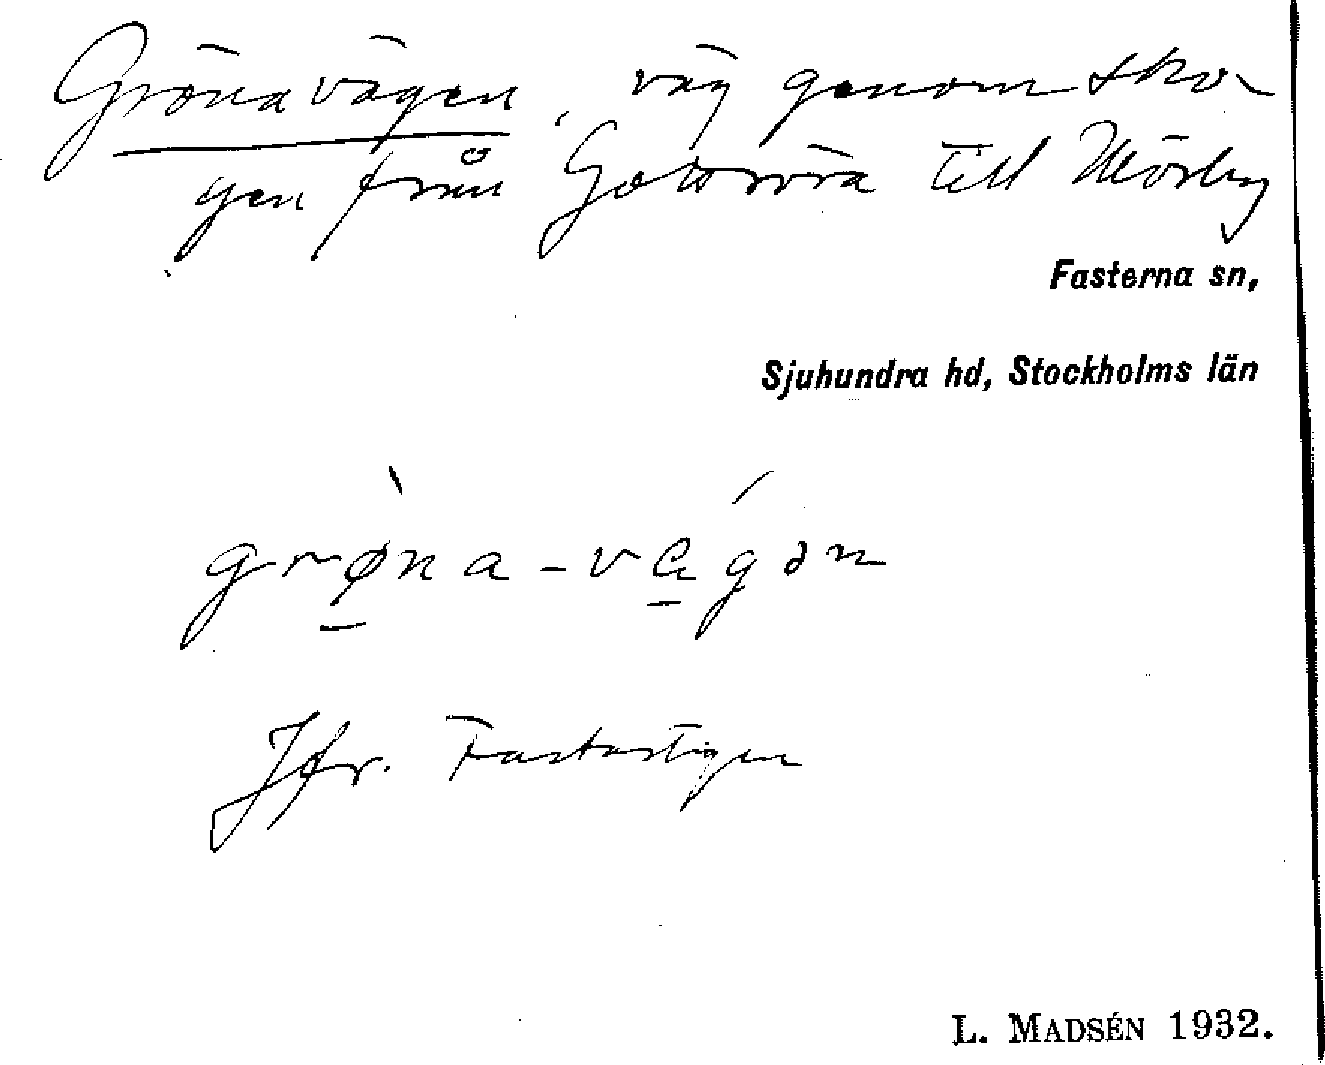 Gröna vägen, väg genom sko
gen från Gottröra till Mörby
Fasterna sn,
Sjuhundra hd, Stockholms län
grø̱na-va̱gən
Jfr. Fastastigen
L. MADSÉN 1932.